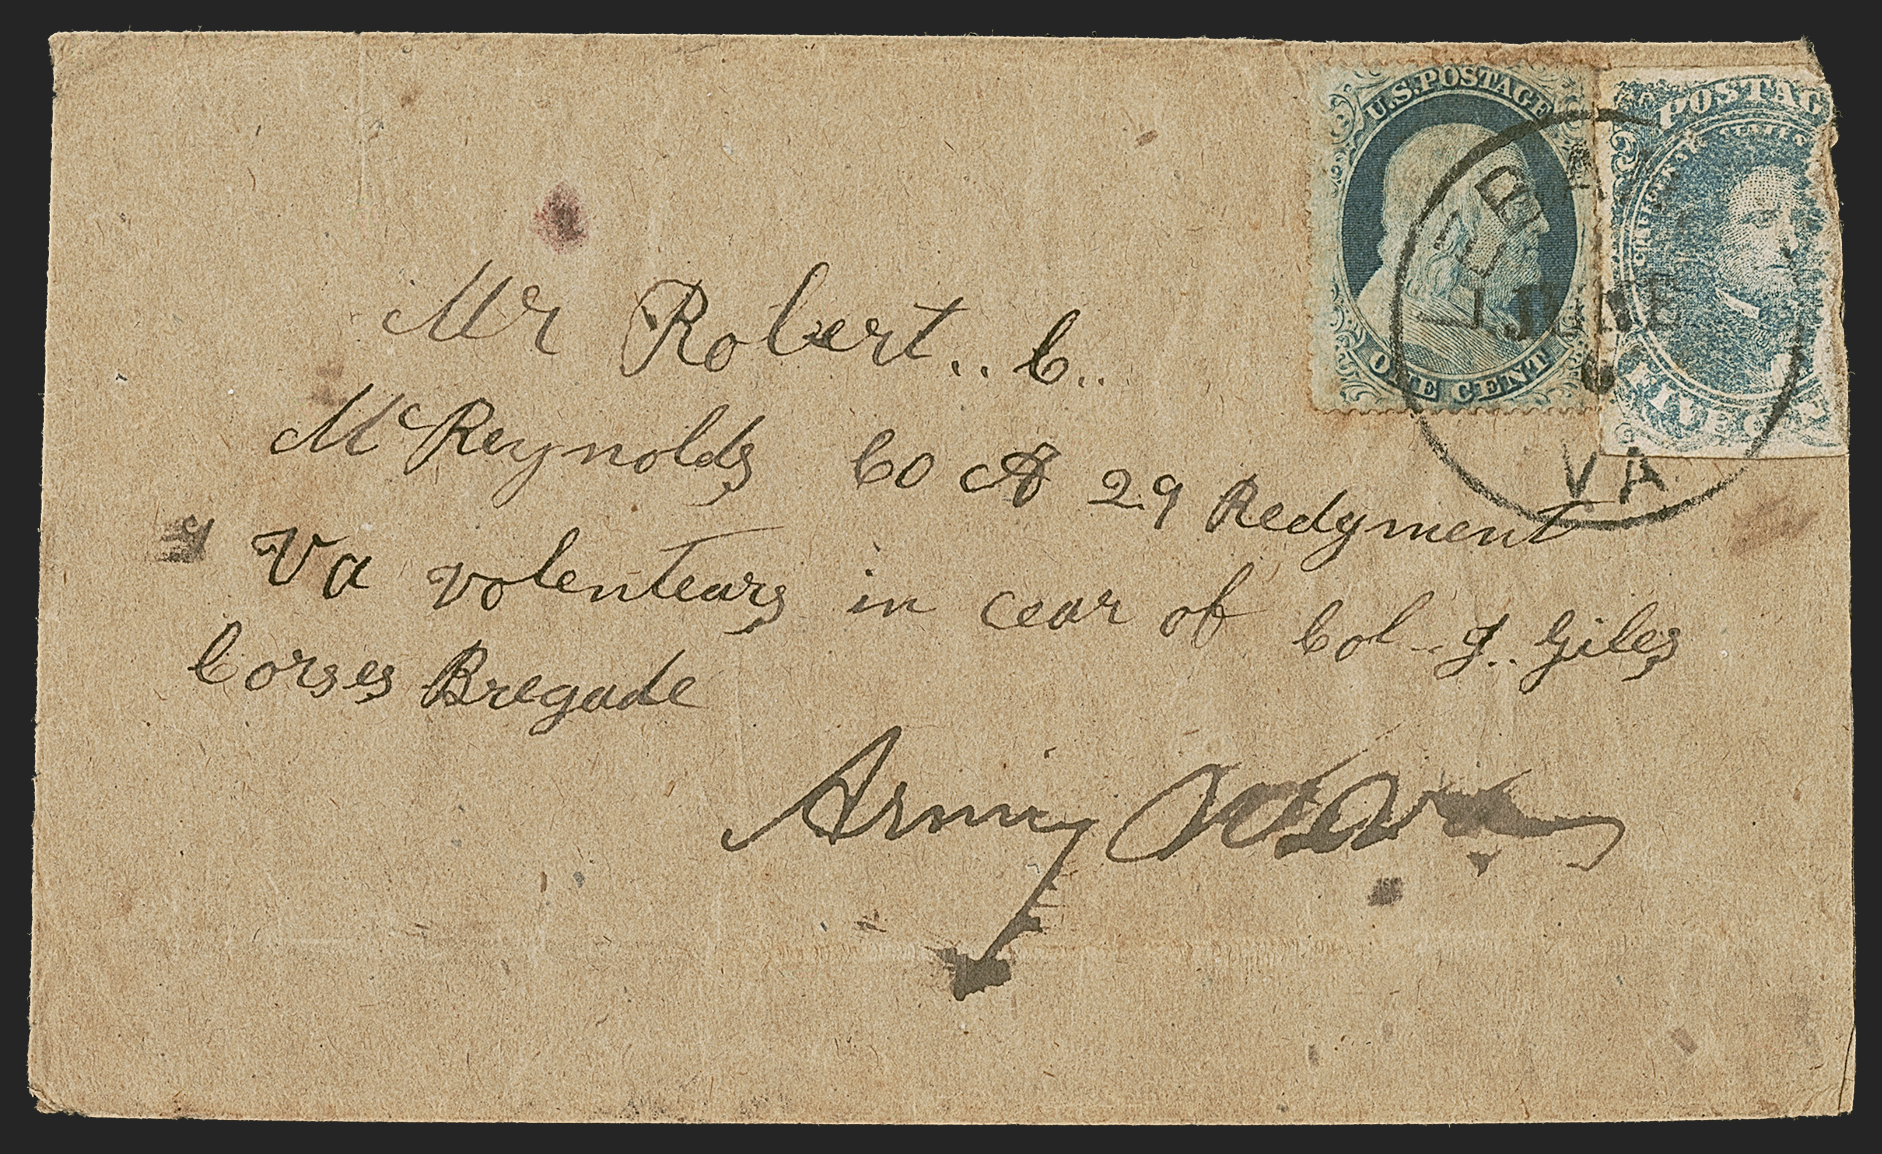 U.S. POSTAGE
ONE CENT
POSTAG
STATES
FIVE CEN
LEBAN
JUNE
VA
Mr Robert.. C..
McReynolds Co A 29 Redgment
Va volentears in cear of Col - J.. Giles
Corses Bregade
Army